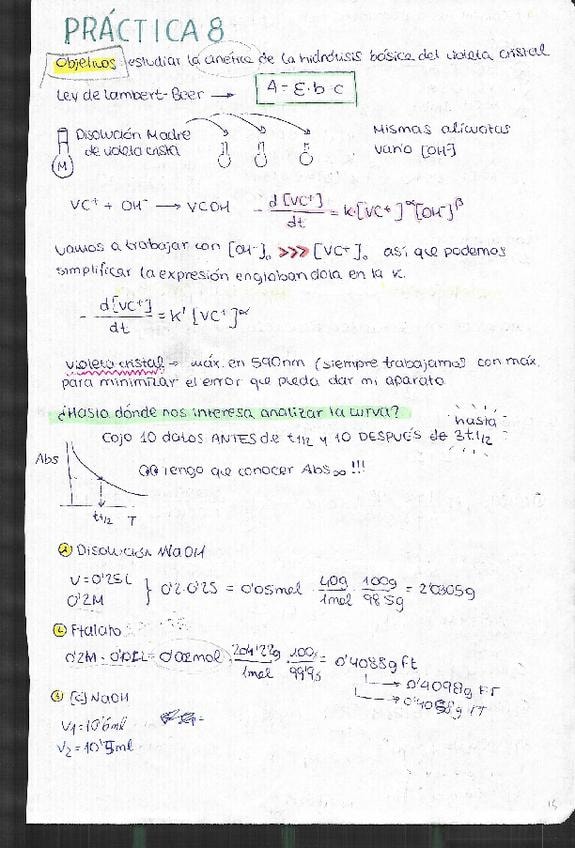 PRÁCTICA 8
Objetivos estudiar la cinética de la hidrólisis básica del violeta cristal
Ley de Lambert-Beer → A = ε·b·c
Disolución Madre
de violeta cristal
M
Mismas alícuotas
vario [OH⁻]
VC⁺ + OH⁻ → VCOH - d[VC⁺]/dt = k·[VC⁺]^α [OH⁻]^β
Vamos a trabajar con [OH⁻]₀ >>> [VC⁺]₀ así que podemos
simplificar la expresión englobandola en la k.
- d[VC⁺]/dt = k' [VC⁺]^α
violeta cristal → máx. en 590nm (siempre trabajamos con máx.
para minimizar el error que pueda dar mi aparato
¿Hasta dónde nos interesa analizar la curva?
hasta
Cojo 10 datos ANTES de t1/2 y 10 DESPUÉS de 3t1/2
Abs
Tengo que conocer Abs∞ !!!
t1/2 T
Disolución NaOH
V = 0'25L
0'2M } 0'2·0'25 = 0'05mol · 40g/1mol · 100g/98'5g = 2'0305g
Ftalato
0'2M · = 0'002mol · 204'22g/1mol · 100g/99'9g = 0'4088g Ft
→ 0'4098g FT
[c] NaOH
V₁ = 10'6ml
V₂ = 10'5ml
15